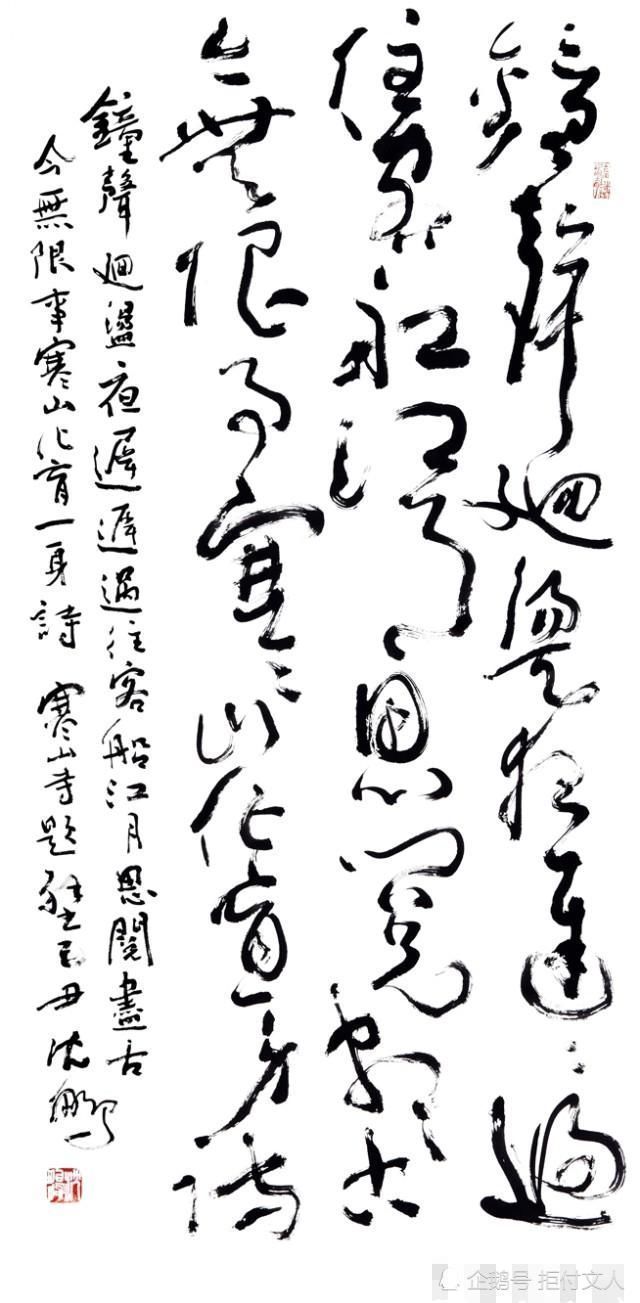 鐘聲迴盪夜遲遲過
往客船江月思閱盡古
今無限事寒山化育一身詩
鐘聲迴盪夜遲遲過往客船江月思閱盡古
今無限事寒山化育一身詩 寒山寺題壁己丑沈鵬
企鹅号 拒付文人